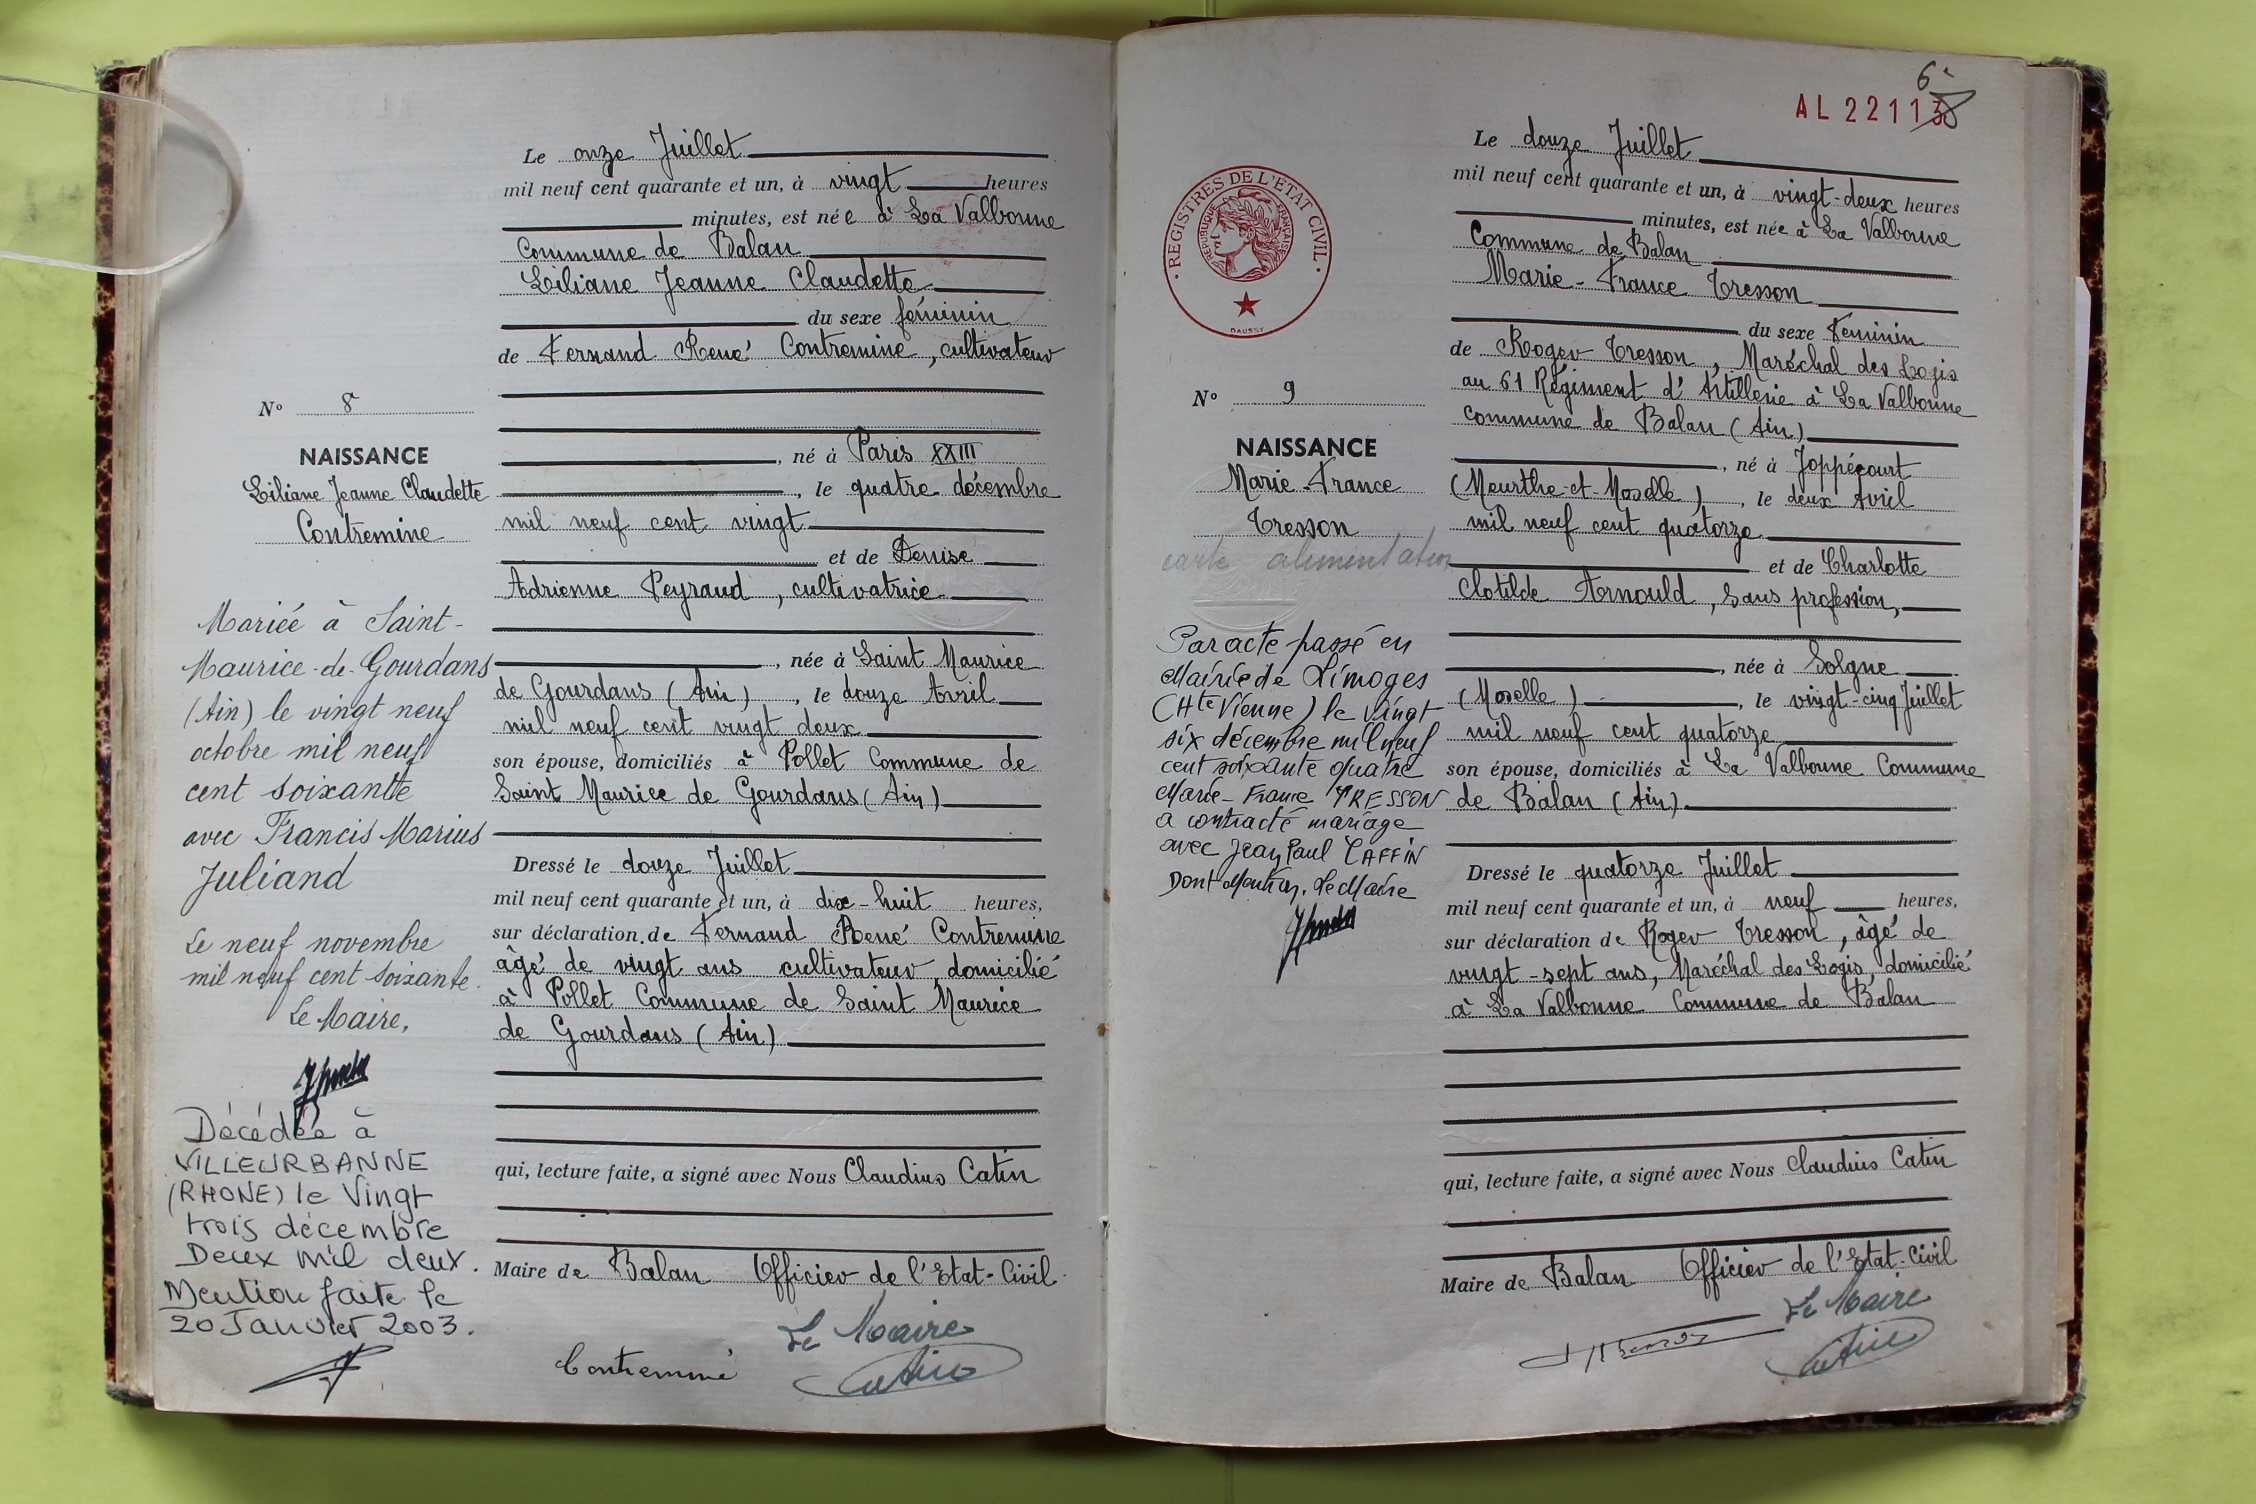 Le onze Juillet
mil neuf cent quarante et un, à vingt heures
minutes, est née à La Valbonne
Commune de Balan
Liliane Jeanne Claudette
du sexe féminin
de Fernand René Contremine, cultivateur
N° 8
NAISSANCE
Liliane Jeanne Claudette
Contremine
, né à Paris XXIII
, le quatre décembre
mil neuf cent vingt
et de Denise
Adrienne Peyraud, cultivatrice
, née à Saint Maurice
de Gourdans (Ain), le douze Avril
mil neuf cent vingt deux
son épouse, domiciliés à Pollet Commune de
Saint Maurice de Gourdans (Ain)
Dressé le douze Juillet
mil neuf cent quarante et un, à dix-huit heures,
sur déclaration de Fernand René Contremine
âgé de vingt ans cultivateur, domicilié
à Pollet Commune de Saint Maurice
de Gourdans (Ain)
qui, lecture faite, a signé avec Nous Claudius Catin
Maire de Balan Officier de l'Etat-Civil
Le Maire
Contremine
Catin
Mariée à Saint-
Maurice-de-Gourdans
(Ain) le vingt neuf
octobre mil neuf
cent soixante
avec Francis Marius
Juliand
Le neuf novembre
mil neuf cent soixante.
Le Maire,
Décédée à
VILLEURBANNE
(RHONE) le Vingt
trois décembre
Deux mil deux.
Mention faite le
20 Janvier 2003.
6
AL 22113
REGISTRES DE L'ÉTAT CIVIL
RÉPUBLIQUE FRANÇAISE
DAUSSY
Le douze Juillet
mil neuf cent quarante et un, à vingt-deux heures
minutes, est née à La Valbonne
Commune de Balan
Marie-France Tresson
du sexe Féminin
de Roger Tresson, Maréchal des Logis
au 61 Régiment d'Artillerie à La Valbonne
Commune de Balan (Ain)
N° 9
NAISSANCE
Marie-France
Tresson
carte alimentation
, né à Joppécourt
(Meurthe-et-Moselle), le deux Avril
mil neuf cent quatorze
et de Charlotte
Clotilde Arnould, sans profession,
, née à Solgne
(Moselle), le vingt-cinq Juillet
mil neuf cent quatorze
son épouse, domiciliés à La Valbonne Commune
de Balan (Ain)
Dressé le quatorze Juillet
mil neuf cent quarante et un, à neuf heures,
sur déclaration de Roger Tresson, âgé de
vingt-sept ans, Maréchal des Logis, domicilié
à La Valbonne Commune de Balan
qui, lecture faite, a signé avec Nous Claudius Catin
Maire de Balan Officier de l'Etat-Civil
Le Maire
Catin
Par acte passé en
Mairie de Limoges
(Hte Vienne) le Vingt
six décembre mil neuf
cent soixante quatre
Marie-France TRESSON
a contracté mariage
avec Jean Paul TAFFIN
Dont Mention. Le Maire